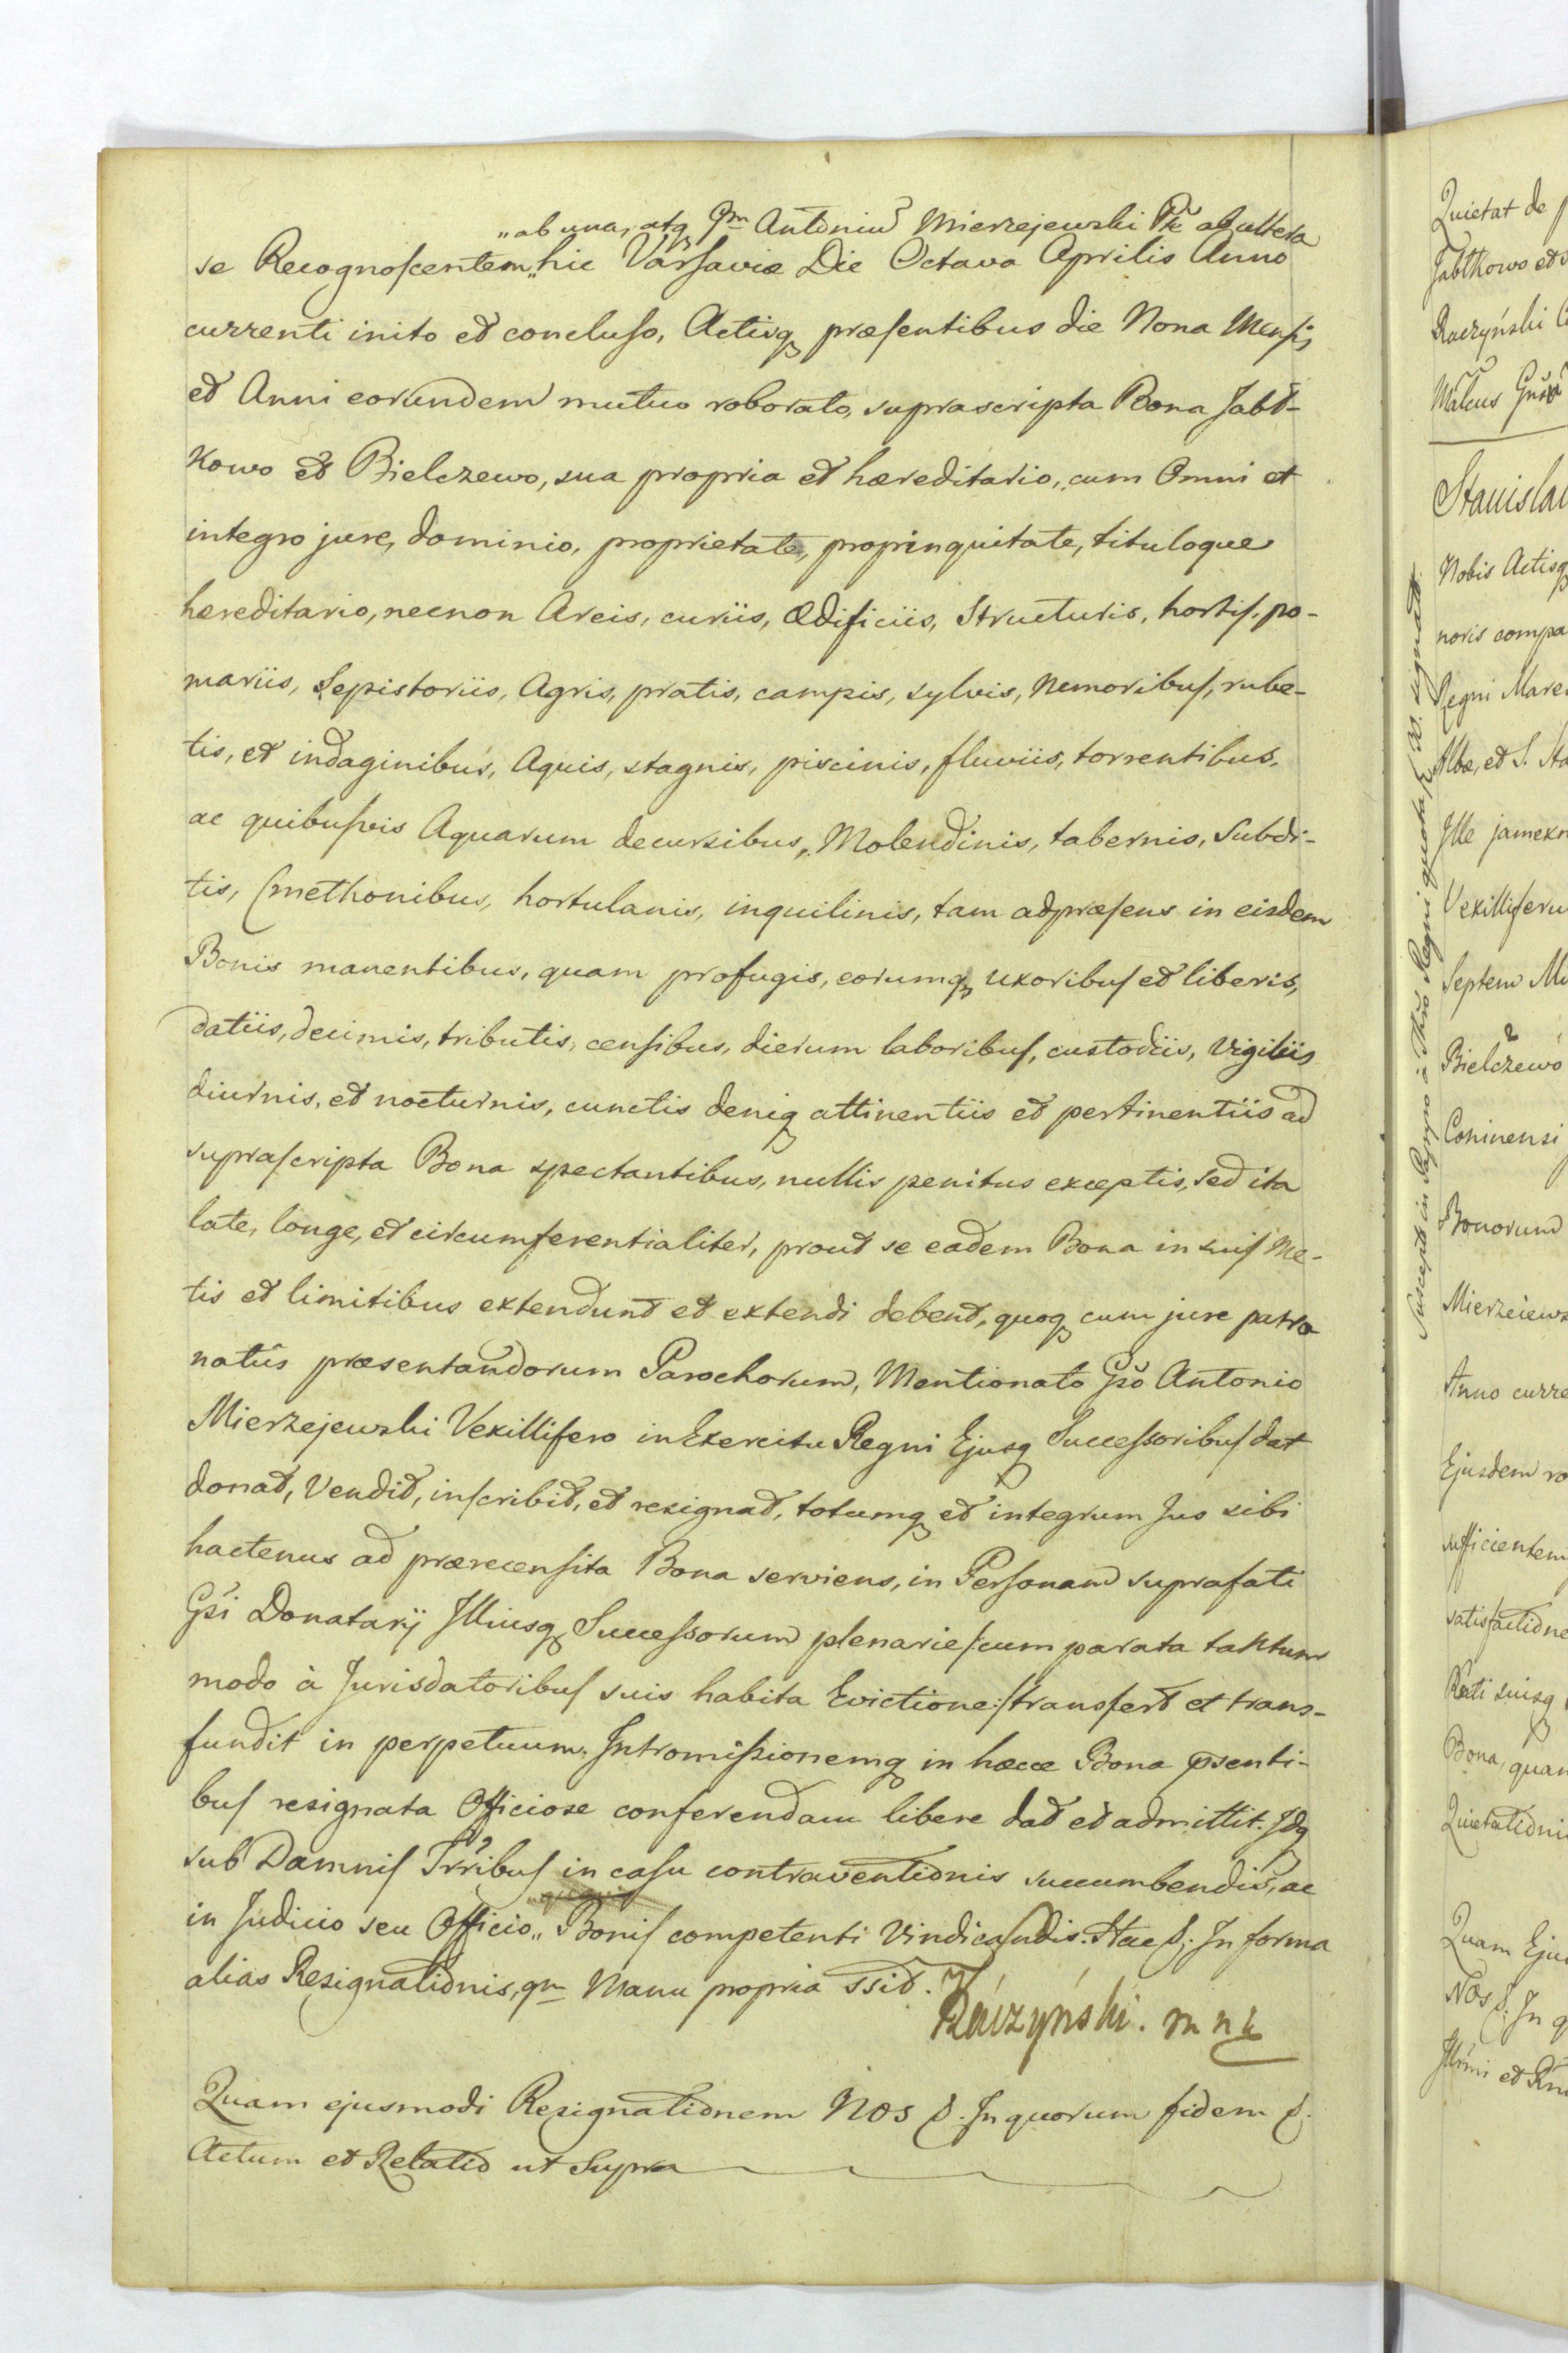 „ab una, atq̨ Gm Antonium Mierzejewski Ptê ab altera
se Recognoscentem„ hic Varsaviæ Die Octava Aprilis Anno
currenti inito et concluso, Actisq̨ præsentibus die Nona Mensis
et Anni eorundem mutuo roborato, suprascripta Bona Jabł-
kowo et Bielczewo, sua propria et hæreditario, cum Omni et
integro jure, dominio, proprietate, propinquitate, tituloque
hæreditario, necnon Areis, curiis, Ædificiis, Structuris, hortis, po-
mariis, Sepistoriis, Agris, pratis, campis, sylvis, Nemoribus, rube-
tis, et indaginibus, Aquis, stagnis, piscinis, fluviis, torrentibus,
ac quibusvis Aquarum decursibus, Molendinis, tabernis, Subdi-
tis, Cmethonibus, hortulanis, inquilinis, tam adpræsens in eisdem
Bonis manentibus, quam profugis, eorumq̨ Uxoribus et liberis,
datiis, decimis, tributis, censibus, dierum laboribus, custodiis, Vigiliis
diurnis, et nocturnis, cunctis deniq̨ attinentiis et pertinentiis ad
suprascripta Bona spectantibus, nullis penitus exceptis, sed ita
late, longe, et circumferentialiter, prout se eadem Bona in suis Me-
tis et limitibus extendunt et extendi debent, quoq̨ cum jure patro
natûs præsentandorum Parochorum, Mentionato Gso Antonio
Mierzejewski Vexillifero in Exercitu Regni Ejusq̨ Successoribus dat
donat, Vendit, inscribit, et resignat, totumq̨ et integrum Jus sibi
hactenus ad prærecensita Bona serviens, in Personam suprafati
Gsi Donatarij Illiusq̨ Successorum plenarie /:cum parata tantum
modo à Jurisdatoribus suis habita Evictione:/ transfert et trans-
fundit in perpetuum. Intromissionemq̨ in hæcce Bona psenti-
bus resignata Officiose conferendam libere dat et admittit. Idq̨
sub Damnis Trribus in casu contraventionis succumbendis, ac
in Judicio seu Officio„ Bonis competenti Vindicandis. Hac &. In forma
alias Resignationis, qm Manu propria ssit.
Raczyński. mpp
Quam ejusmodi Resignationem Nos &. In quorum fidem &.
Actum et Relatio ut Supra
Suscepta in Papyro à Thro Regni quota
signato
Quietat de
Jabłkowo et
Raczyński
Małcus
Stanislaus
Nobis Actisq̨
noris compa
Regni Mare
Albæ, et S. Sta
Ille jamexn
Vexilliferu
Septem Mi
Bielczewo
Coninensi
Bonorum
Mierzeiews
Anno curre
Ejusdem ro
sufficientem
satisfactione
Rati suisq̨
Bona, quam
Quietationis
Quam Eju
Nos &. In q
Illrmi et